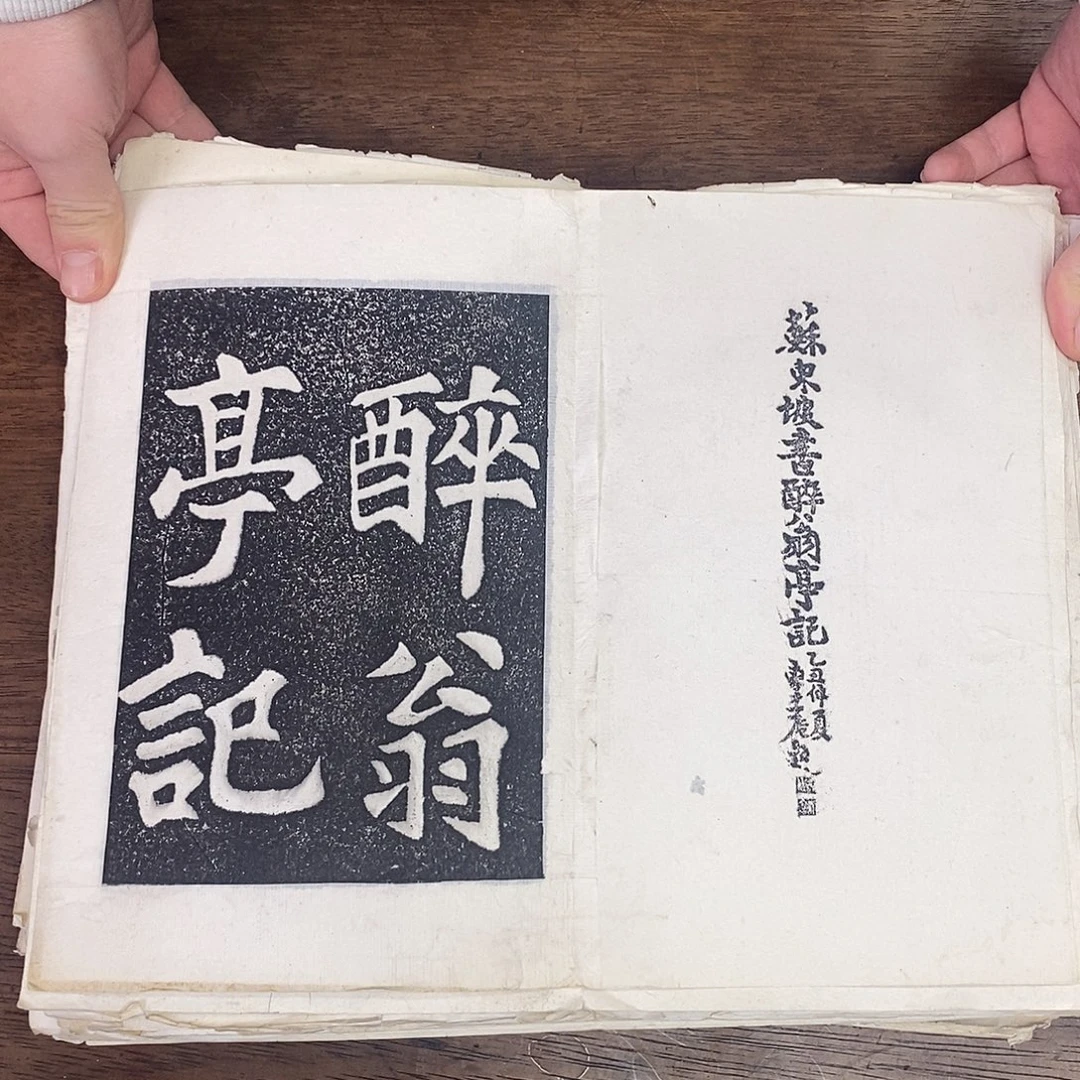 蘇東坡書醉翁亭記
乙丑仲夏
醉翁
亭記